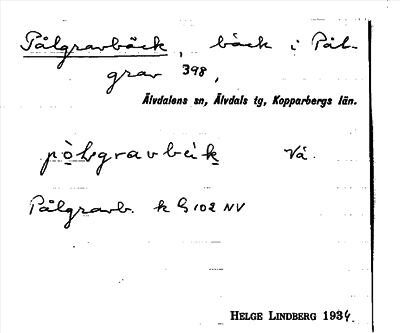 Pålgravbäck, bäck i Pål-
grav 398,
Älvdalens sn, Älvdals tg, Kopparbergs län.
Vå.
Pålgravb. k G 102 NV
HELGE LINDBERG 1934.